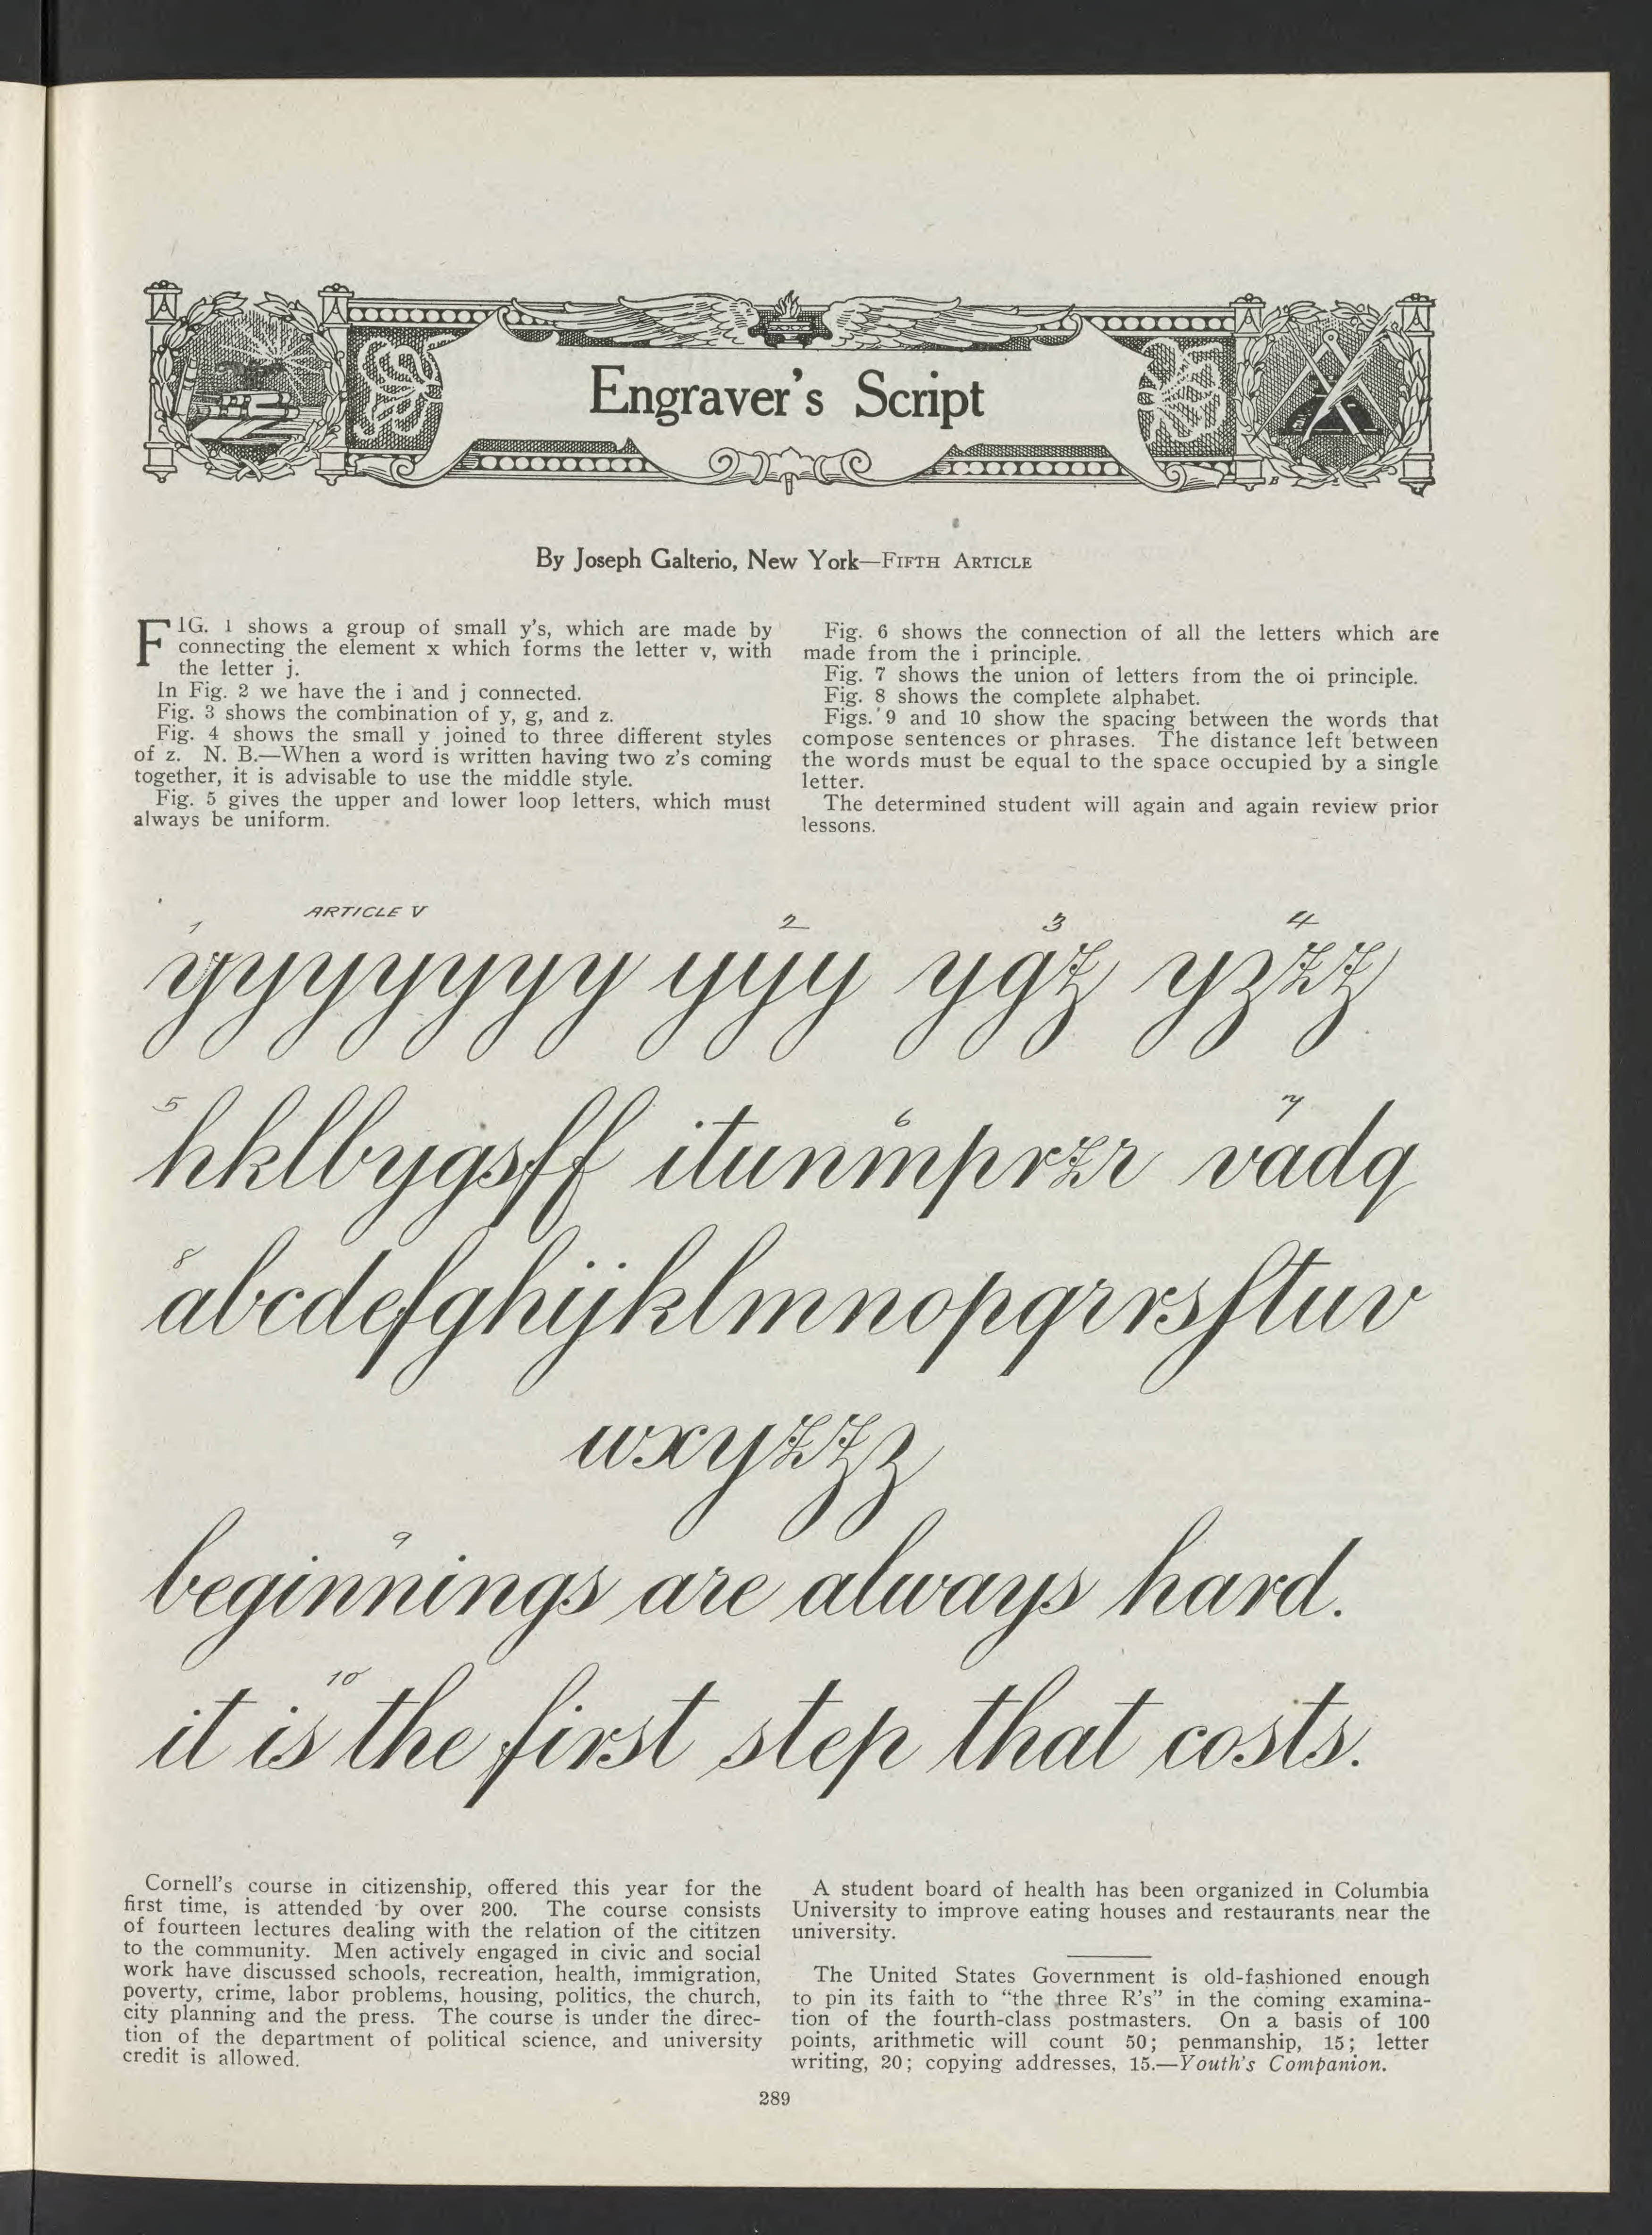 Engraver's Script
By Joseph Galterio, New York—FIFTH ARTICLE
FIG. 1 shows a group of small y's, which are made by
connecting the element x which forms the letter v, with
the letter j.
In Fig. 2 we have the i and j connected.
Fig. 3 shows the combination of y, g, and z.
Fig. 4 shows the small y joined to three different styles
of z. N. B.—When a word is written having two z's coming
together, it is advisable to use the middle style.
Fig. 5 gives the upper and lower loop letters, which must
always be uniform.
Fig. 6 shows the connection of all the letters which are
made from the i principle.
Fig. 7 shows the union of letters from the oi principle.
Fig. 8 shows the complete alphabet.
Figs. 9 and 10 show the spacing between the words that
compose sentences or phrases. The distance left between
the words must be equal to the space occupied by a single
letter.
The determined student will again and again review prior
lessons.
1 ARTICLE V 2 3 4
yyyyyyy yyy ygz yzzz
5 6 7
hklbygsff itunmprzr vadq
8
abcdefghijklmnopqrrsftuv
wxyzzz
9
beginnings are always hard.
10
it is the first step that costs.
Cornell's course in citizenship, offered this year for the
first time, is attended by over 200. The course consists
of fourteen lectures dealing with the relation of the cititzen
to the community. Men actively engaged in civic and social
work have discussed schools, recreation, health, immigration,
poverty, crime, labor problems, housing, politics, the church,
city planning and the press. The course is under the direc-
tion of the department of political science, and university
credit is allowed.
A student board of health has been organized in Columbia
University to improve eating houses and restaurants near the
university.
The United States Government is old-fashioned enough
to pin its faith to "the three R's" in the coming examina-
tion of the fourth-class postmasters. On a basis of 100
points, arithmetic will count 50; penmanship, 15; letter
writing, 20; copying addresses, 15.—Youth's Companion.
289